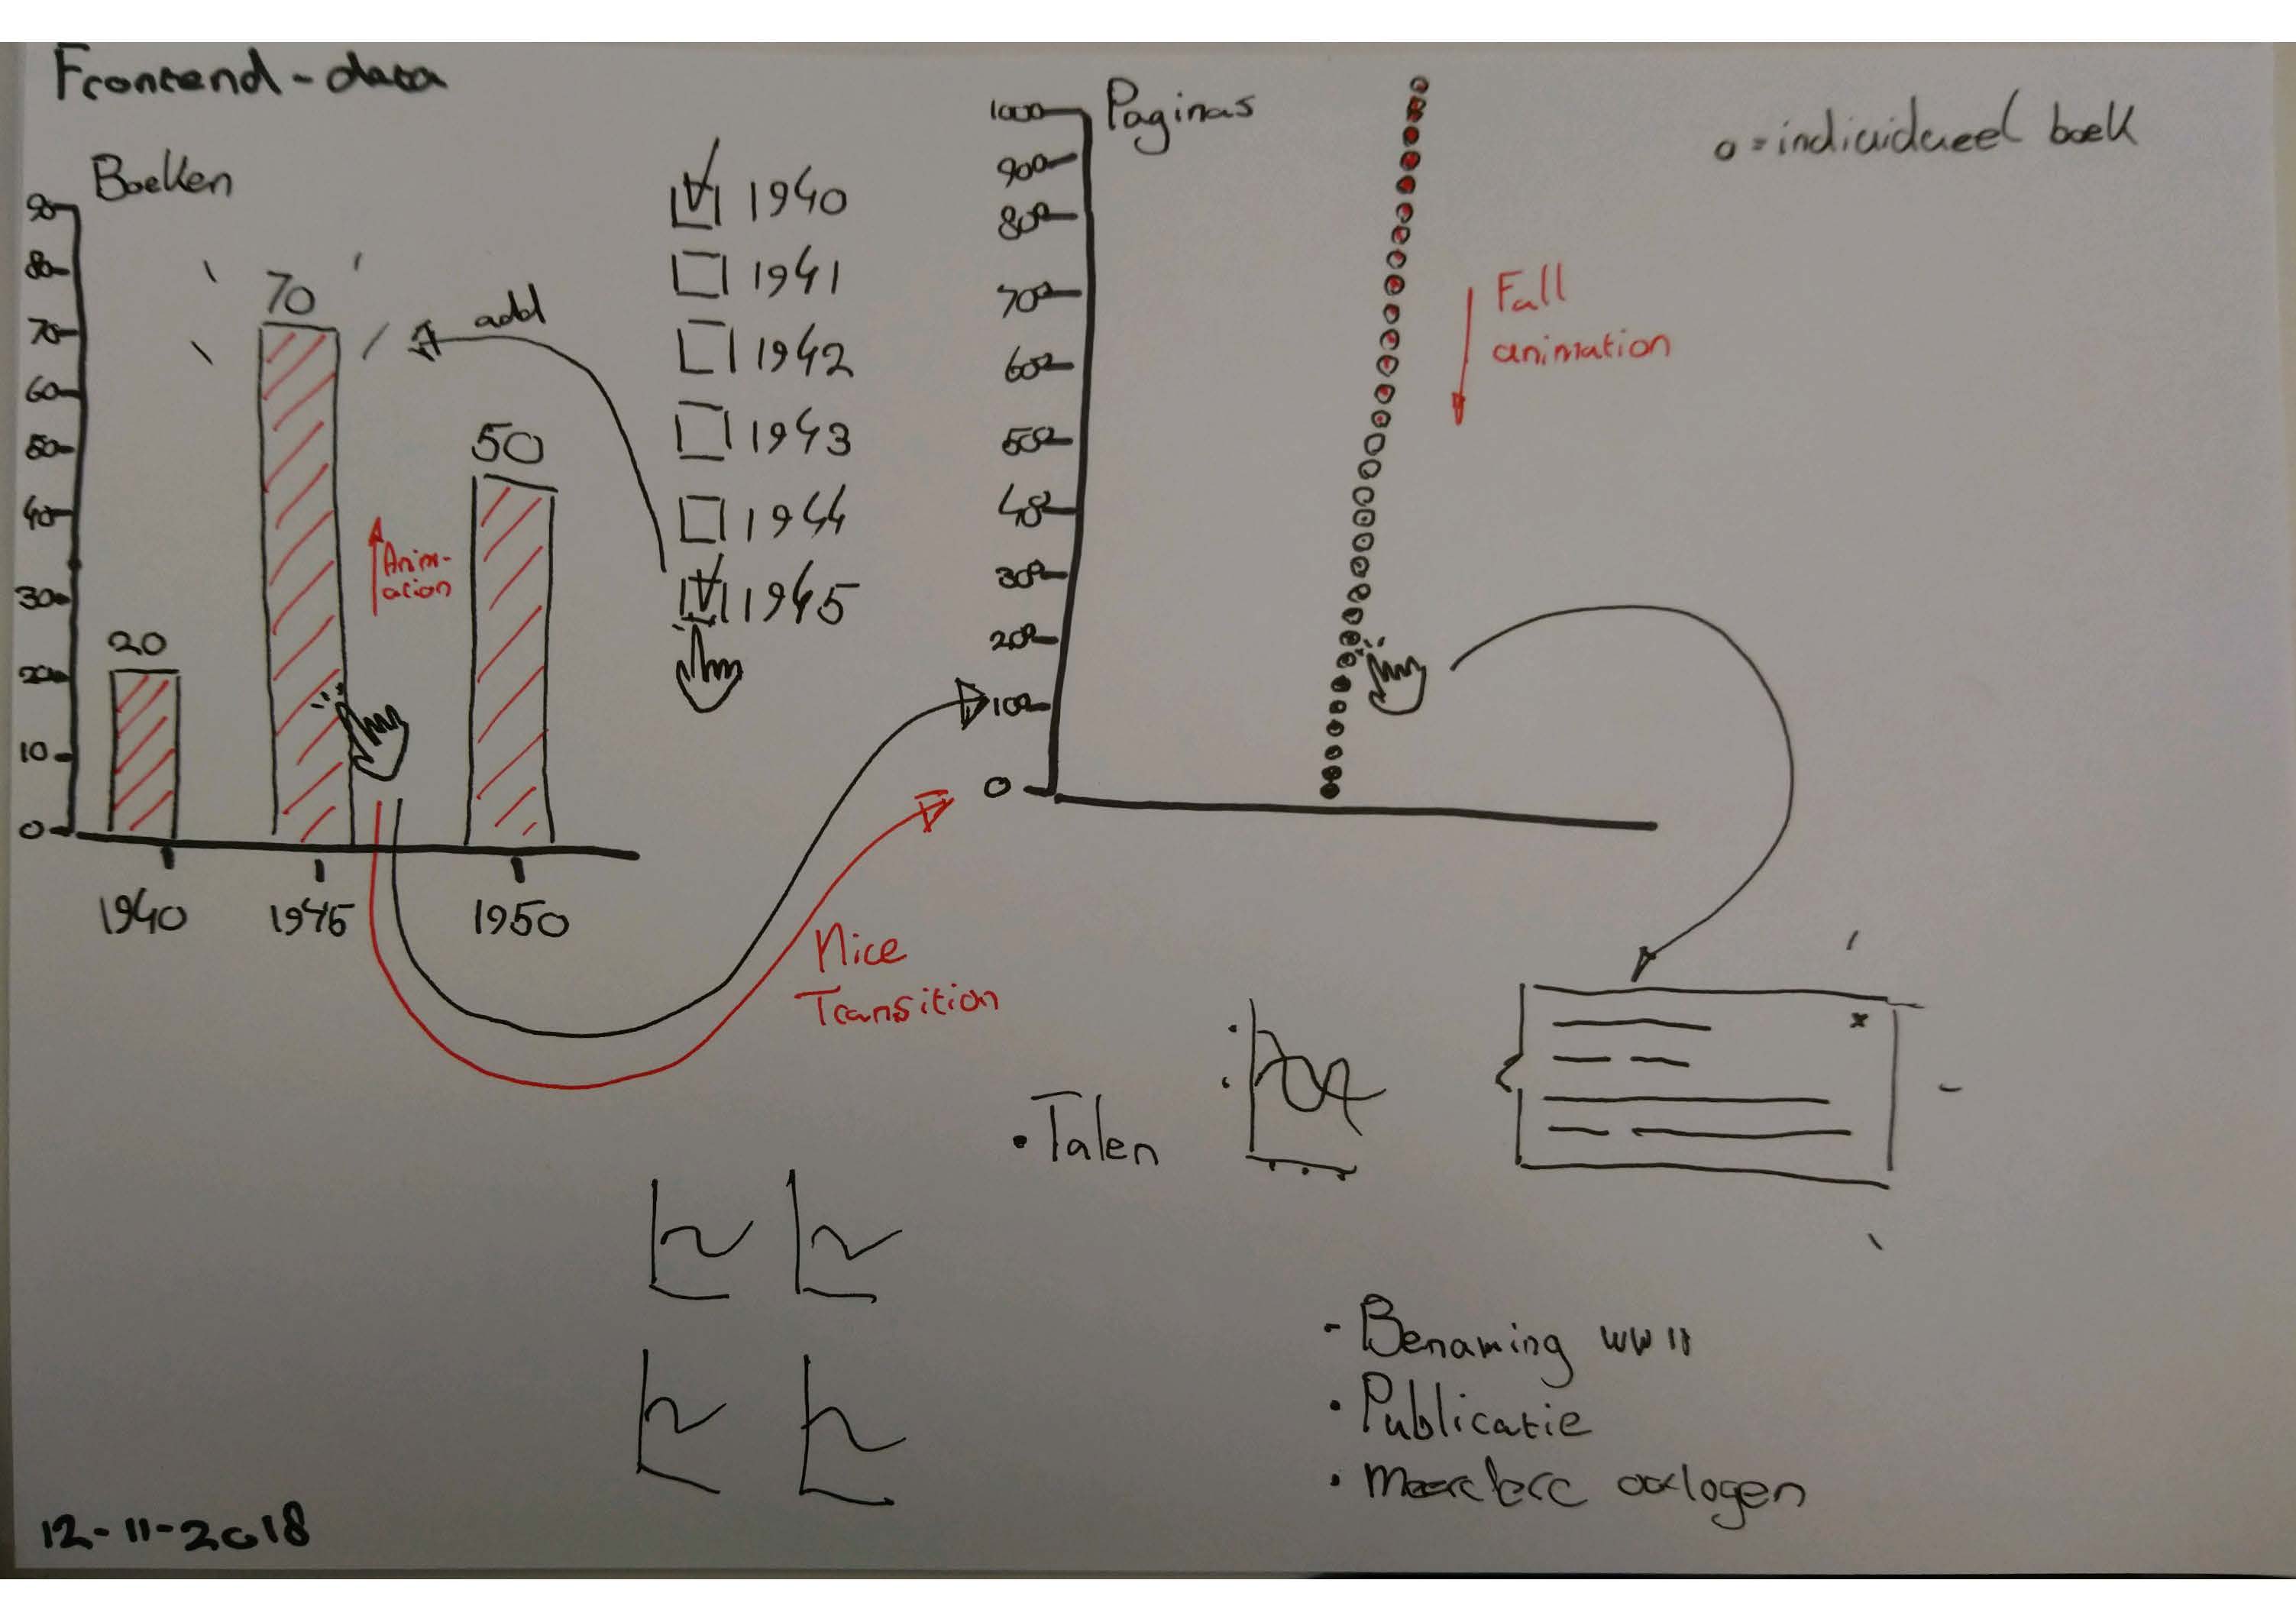 Frontend - data
Boeken
90
80
70
60
50
40
30
20
10
0
20
70
50
1940
1945
1950
Anim-
ation
add
1940
1941
1942
1943
1944
1945
Nice
Transition
Paginas
1000
900
800
700
600
500
400
300
200
100
0
o = individueel boek
Fall
animation
x
• Talen
- Benaming WWII
• Publicatie
• Meerdere oorlogen
12-11-2018